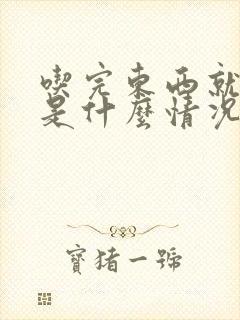 喫完東西就
是什麼情況
寶猪一號